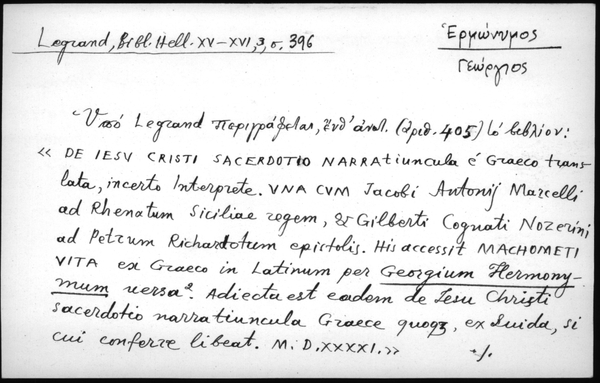 Legrand, Bibl. Hell. XV–XVI, 3, σ. 396
Ἑρμώνυμος
Γεώργιος
Ὑπό Legrand περιγράφεται, ἔνθ' ἀνωτ. (ἀριθ. 405) τό βιβλίον:
« DE IESV CRISTI SACERDOTIO NARRATiuncula é Graeco trans-
lata, incerto Interprete. VNA CVM Jacobi Antonij Marcelli
ad Rhenatum Siciliae regem, & Gilberti Cognati Nozerini
ad Petrum Richardotum epistolis. His accessit MACHOMETI
VITA ex Graeco in Latinum per Georgium Hermony-
mum versa. Adiecta est eadem de Iesu Christi
sacerdotio narratiuncula Graece quoqз, ex Suida, si
cui conferre libeat. M. D. XXXXI. » ·/.